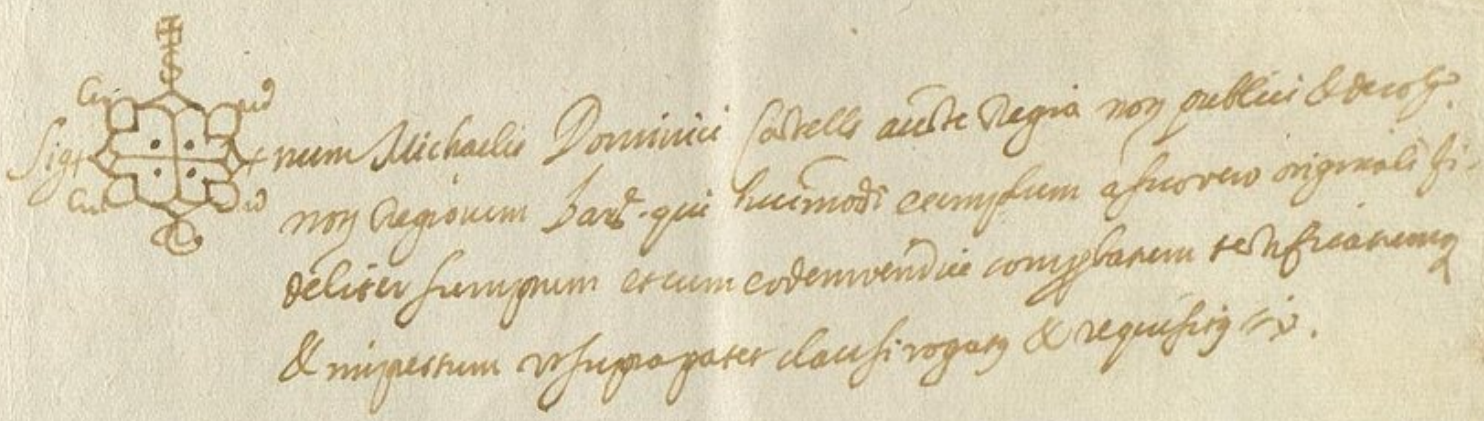 Sig num Michaelis Dominici Castells aucte Regia noty publici & de colo.
noty Regiorum Barᵉ. qui huiusmodi exemplum a suo vero originali fi-
deliter sumptum et cum eodem veridice comprobatum testificatumq
& impertum ut supra patet clausi rogaty & requisity